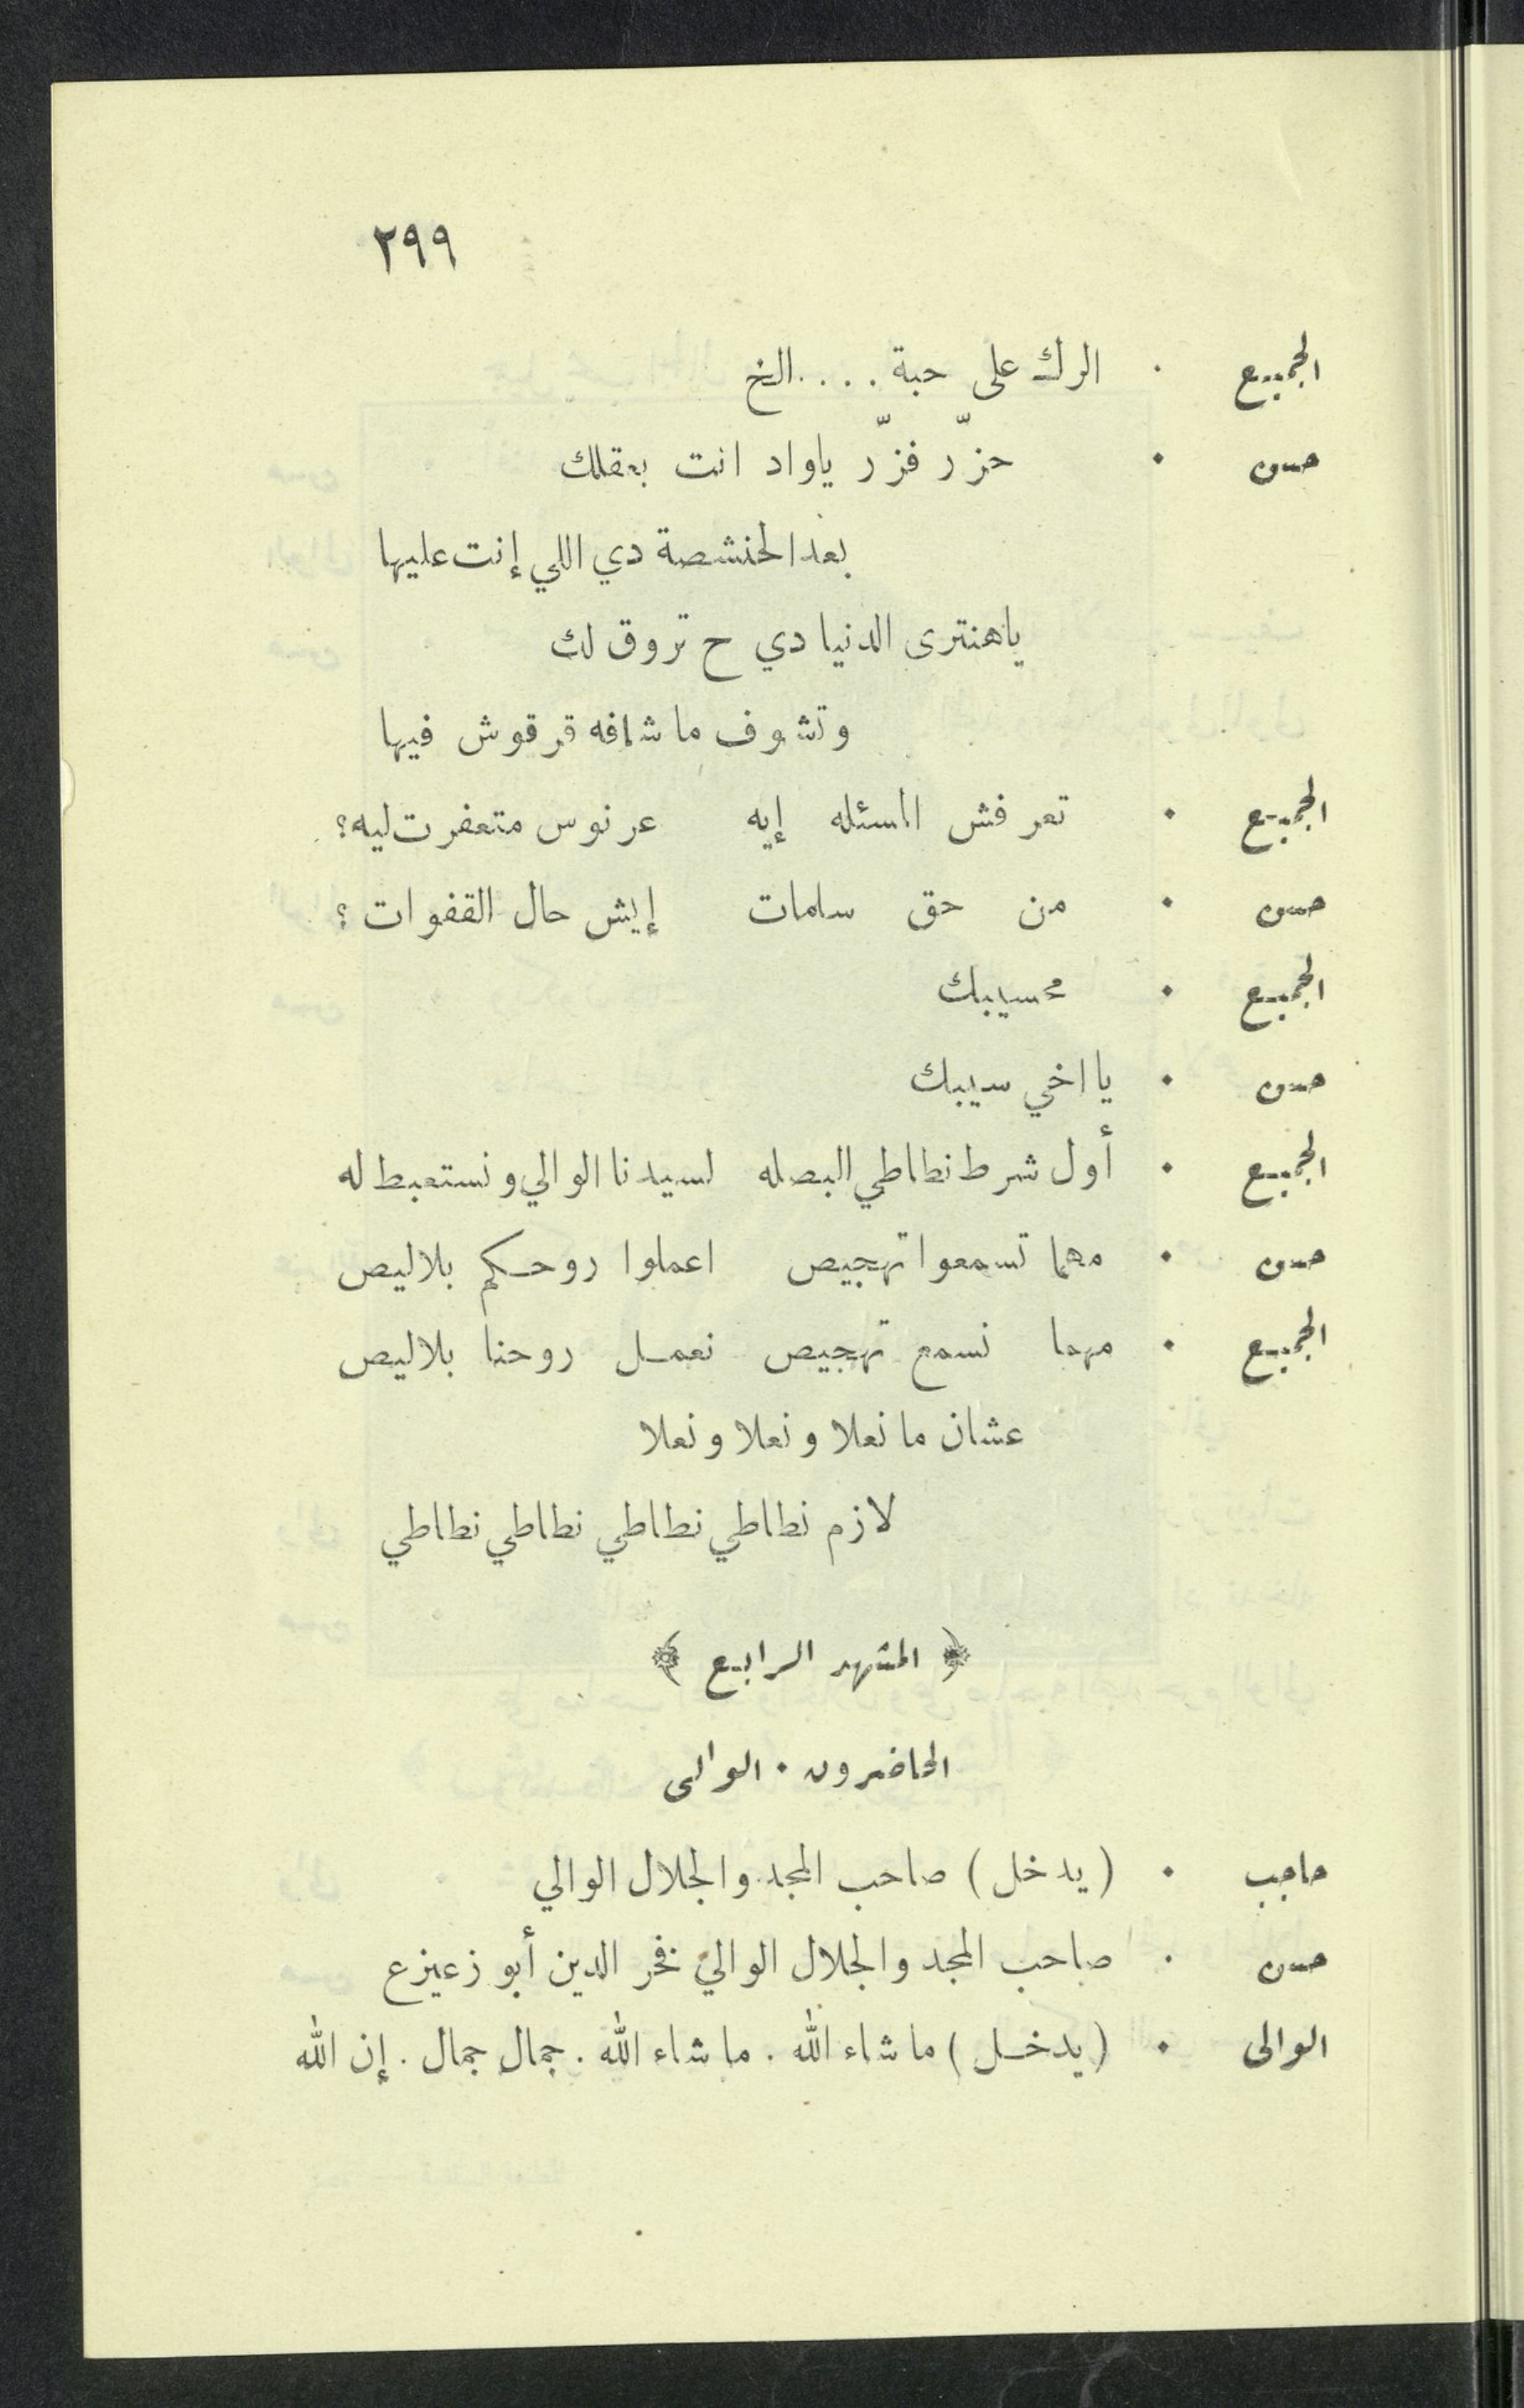 ٢٩٩
الجميع . الرك على حبة . . . . الخ
حسن . حزّر فزّر ياواد انت بعقلك
بعد الحنشصة دي اللي إنت عليها
ياهنترى الدنيا دي ح تروق لك
وتشوف ما شافه قرقوش فيها
الجميع . تعرفش المسئله إيه عرنوس متعفرت ليه؟
حسن . من حق سلامات إيش حال القفوات ؟
الجميع . محسيبك
حسن . يا اخي سيبك
الجميع . أول شرط نطاطي البصله لسيدنا الوالي ونستعبط له
حسن . مهما تسمعوا تهجيص اعملوا روحكم بلاليص
الجميع . مهما نسمع تهجيص نعمل روحنا بلاليص
عشان ما نعلا ونعلا ونعلا
لازم نطاطي نطاطي نطاطي نطاطي
﴿ المشهد الرابع ﴾
الحاضرون . الوالى
حاجب . ( يدخل ) صاحب المجد والجلال الوالي
حسن . صاحب المجد والجلال الوالي فخر الدين أبو زعيزع
الوالى . ( يدخل ) ما شاء الله . ما شاء الله . جمال جمال . إن الله